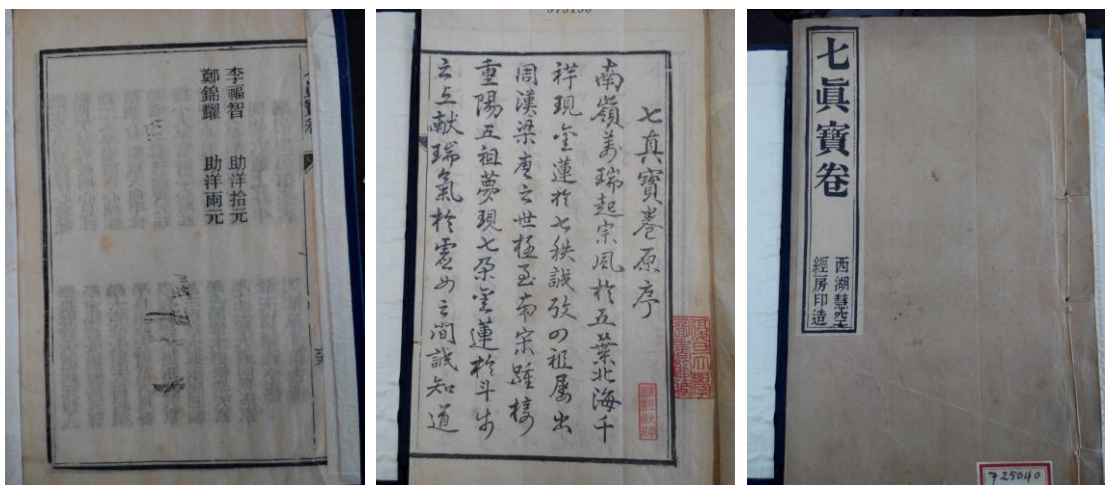 李福智 助洋拾元
鄭錦耀 助洋兩元
七真寶卷原序
南嶺萬瑞起宗風於五葉北海千
祥現金蓮於七秩誠攷四祖屢出
周漢梁唐之世極至南宋踵接
重陽五祖夢現七朵金蓮於斗牛
之上献瑞氣於虛之間誠知道
七眞寶卷
西湖慧空
經房印造
725040